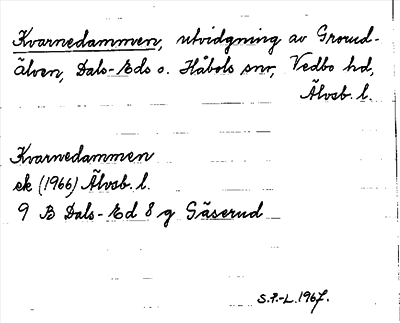 Kvarnedammen, utvidgning av Grorud-
älven, Dals-Eds o. Håbols snr, Vedbo hd,
Älvsb. l.
Kvarnedammen
ek (1966) Älvsb. l.
9 B Dals-Ed 8 g Gäserud
S.P.-L. 1967.